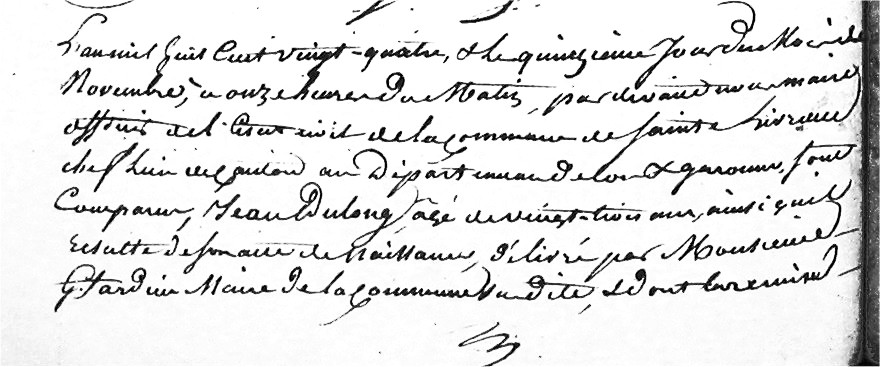 L'an mil huit Cent vingt-quatre, & le quinzième Jour du Mois de
Novembre, à onze heures du Matin, par devant nous maire
officier de l'état civil de la Commune de Sainte Livrade
chef lieu de Canton au Département de Lot & garonne, sont
Comparus, Jean Dulong, agé de vingt-trois ans, ainsi qu'il
Résulte de son acte de Naissance, délivré par Monsieur
G. Jardin Maire de la Commune Sus dite, & dont la remise